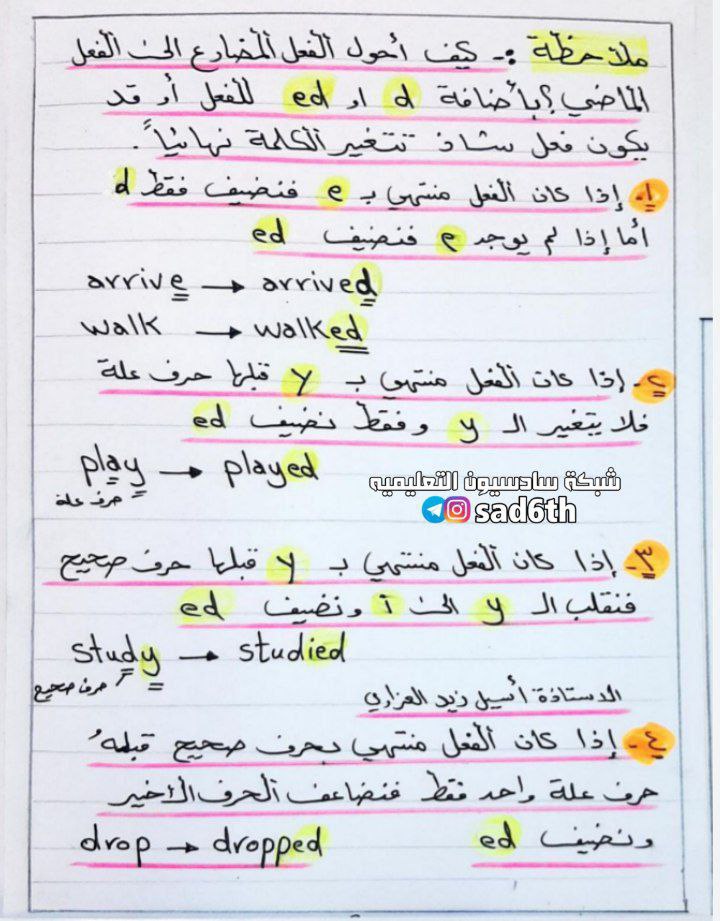 ملاحظة :- كيف أحول الفعل المضارع الى الفعل
الماضي؟ بأضافة d او ed للفعل أو قد
يكون فعل شاذ تتغير الكلمة نهائياً.
١- إذا كان الفعل منتهي بـ e فنضيف فقط d
أما إذا لم يوجد e فنضيف ed
arrive → arrived
walk → walked
٢- إذا كان الفعل منتهي بـ y قبلها حرف علة
فلا يتغير الـ y وفقط نضيف ed
play → played
حرف علة
شبكة سادسيون التعليميه
sad6th
٣- إذا كان الفعل منتهي بـ y قبلها حرف صحيح
فنقلب الـ y الى i ونضيف ed
study → studied
حرف صحيح
الاستاذة أسيل زيد العزاوي
٤- إذا كان الفعل منتهي بحرف صحيح قبلهُ
حرف علة واحد فقط فنضاعف الحرف الأخير
ونضيف ed
drop → dropped